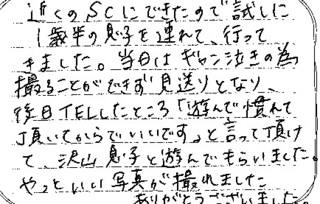 近くのSCにできたので試しに
1歳半の息子を連れて、行って
きました。当日はギャン泣きの為
撮ることができず見送りとなり、
後日TELしたところ「遊んで慣れて
頂いてからでいいです」と言って頂け
て、沢山息子と遊んでもらいました。
やっといい写真が撮れました
ありがとうございました。